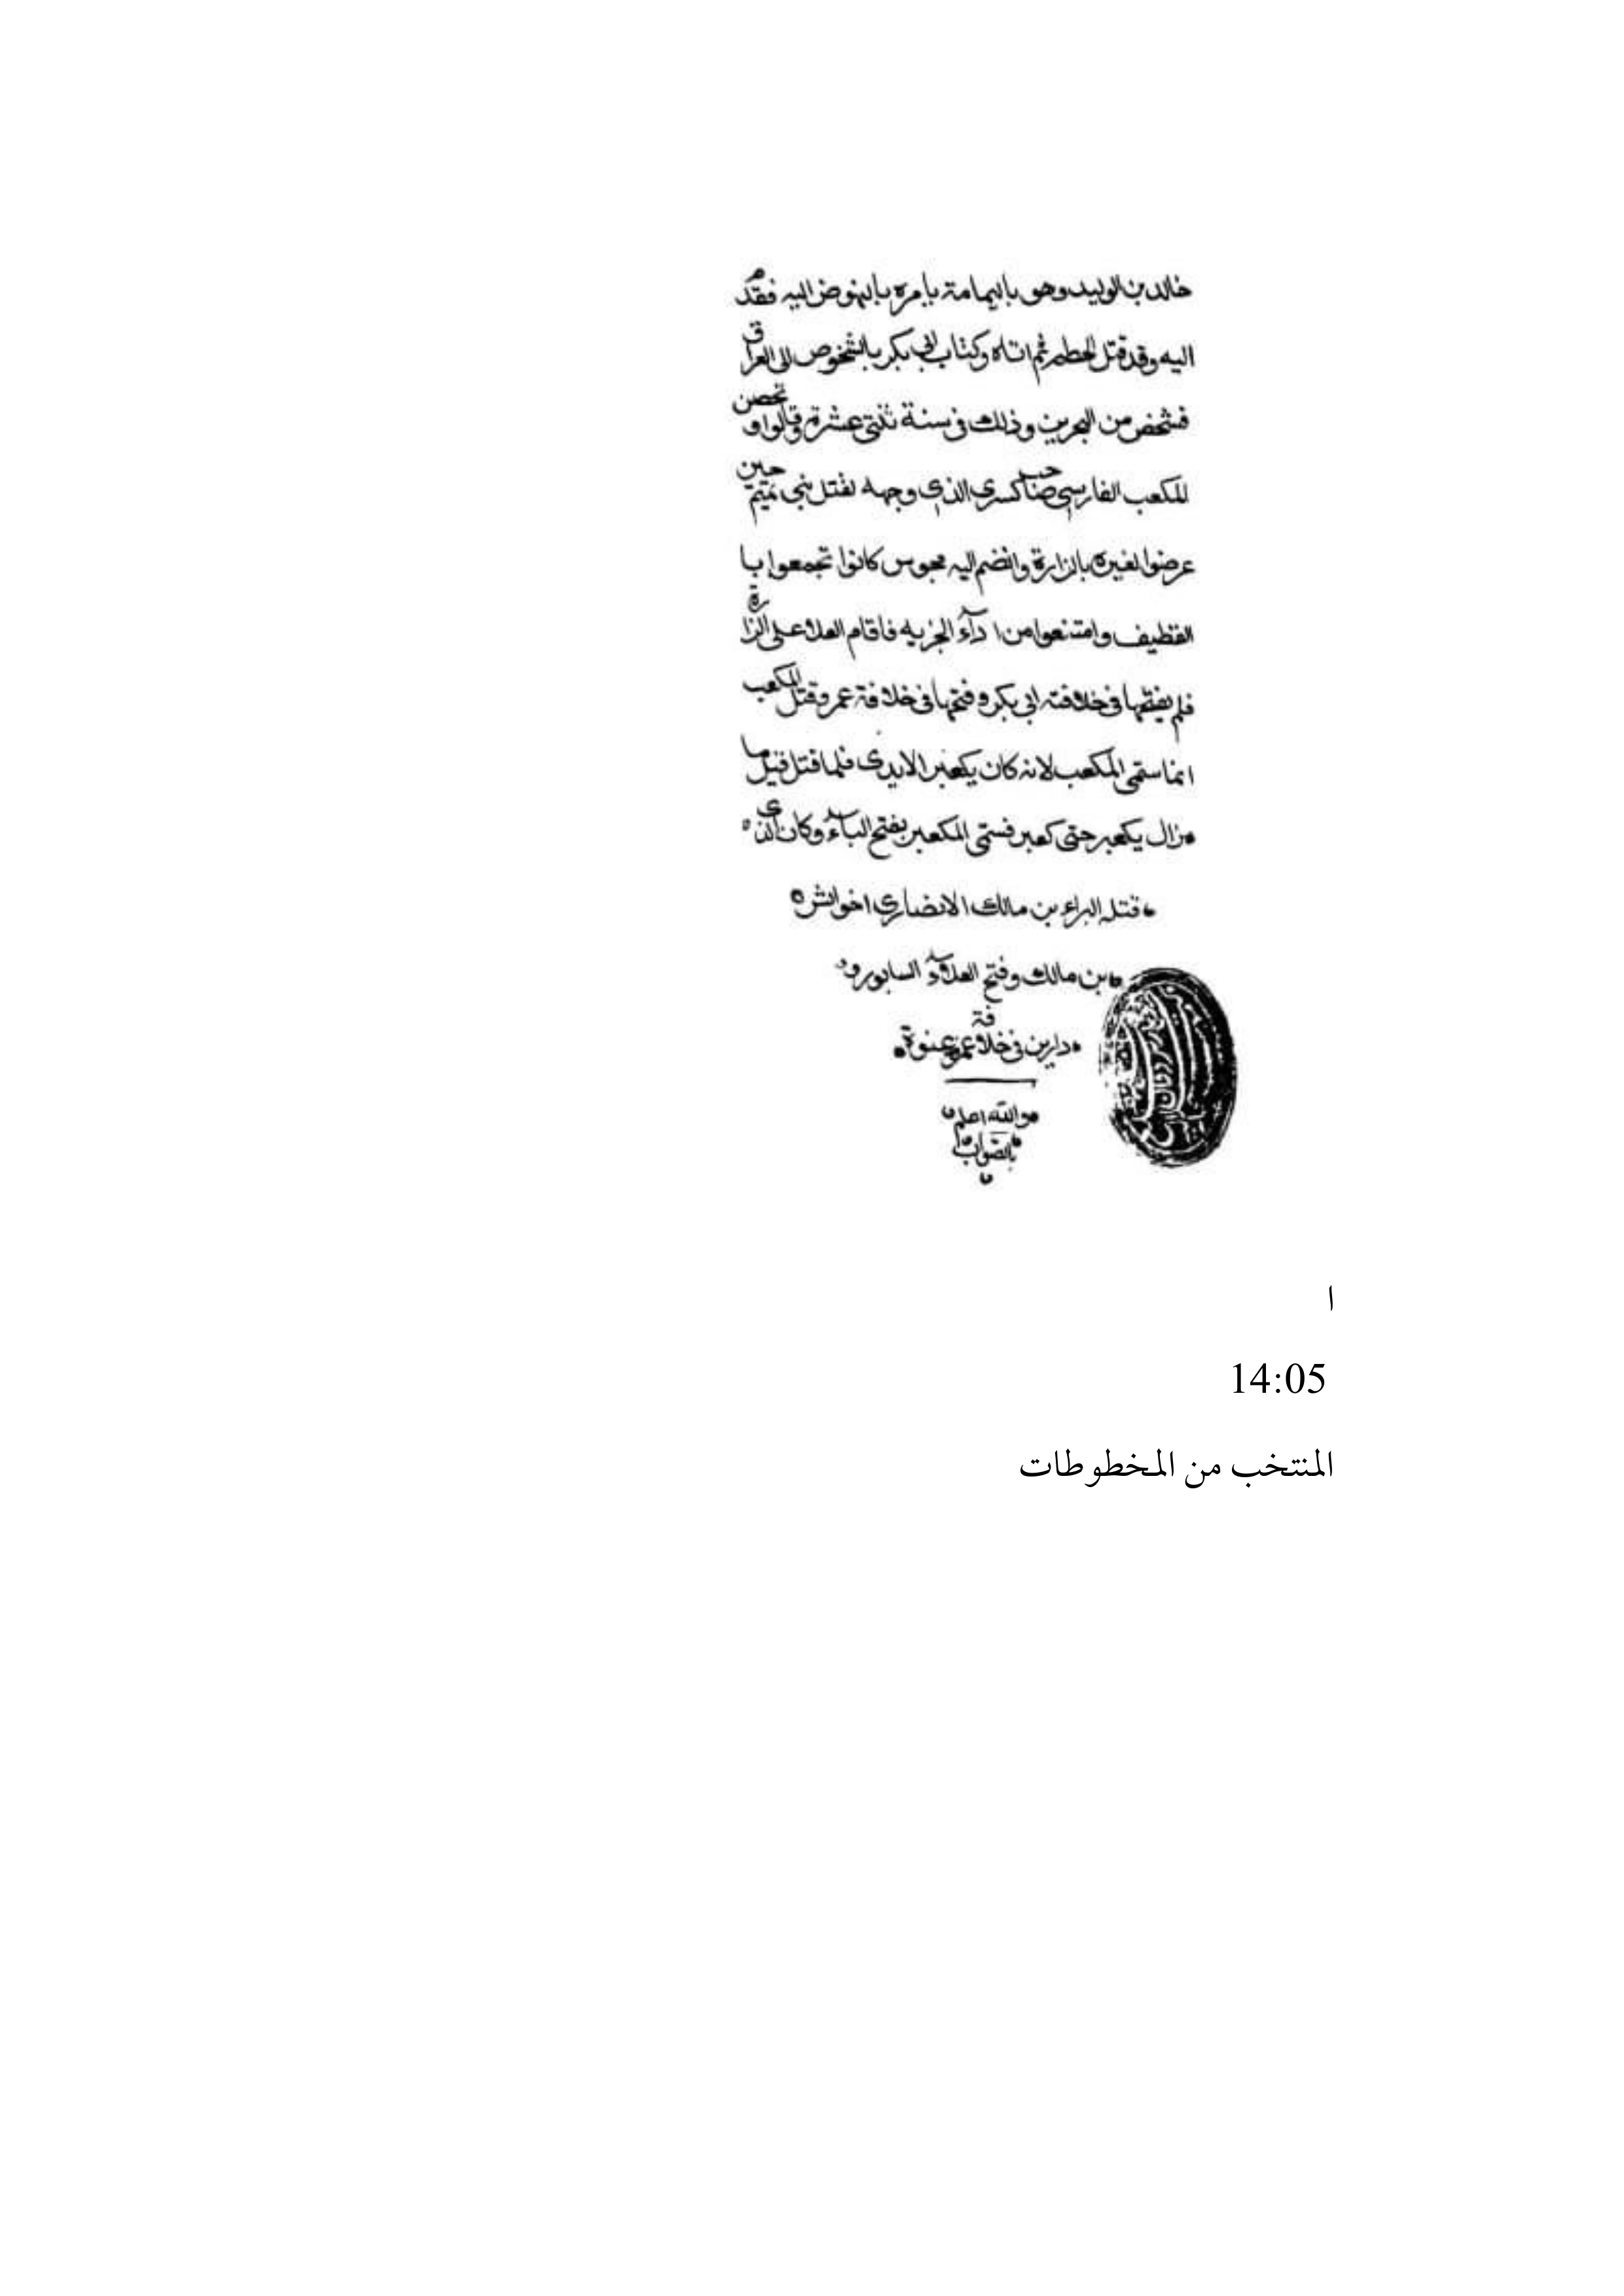 خالد بن الوليد وهو باليمامة يامره بالنهوض اليه فقدم
اليه وقد قتل الحطم ثم اتاه وكتاب ابي بكر بالشخوص الى العراق
فشخص من البحرين وذلك في سنة ثنتى عشرة وقالوا وتحصن
المكعب الفارسي صاحب كسرى الذي وجهه لقتل بني تميم حين
عرضوا لغيره بالزارة وانضم اليه مجوس كانوا تجمعوا با
القطيف وامتنعوا من اداء الجزيه فاقام العلا على الزارة
فلم يفتحها في خلافته ابي بكر وفتحها في خلافة عمر وقتل المكعب
انما سمي المكعب لانه كان يكعبر الايدي فلما قتل قيل ما
زال يكعبر حتى كعبر فسمي المكعبر بفتح الباء وكان الذي
قتله البراء بن مالك الانصاري اخوانس
بن مالك وفتح العلاء السابور و
دارين في خلافة عمر عنوة
والله اعلم
بالصواب
ا
14:05
المنتخب من المخطوطات